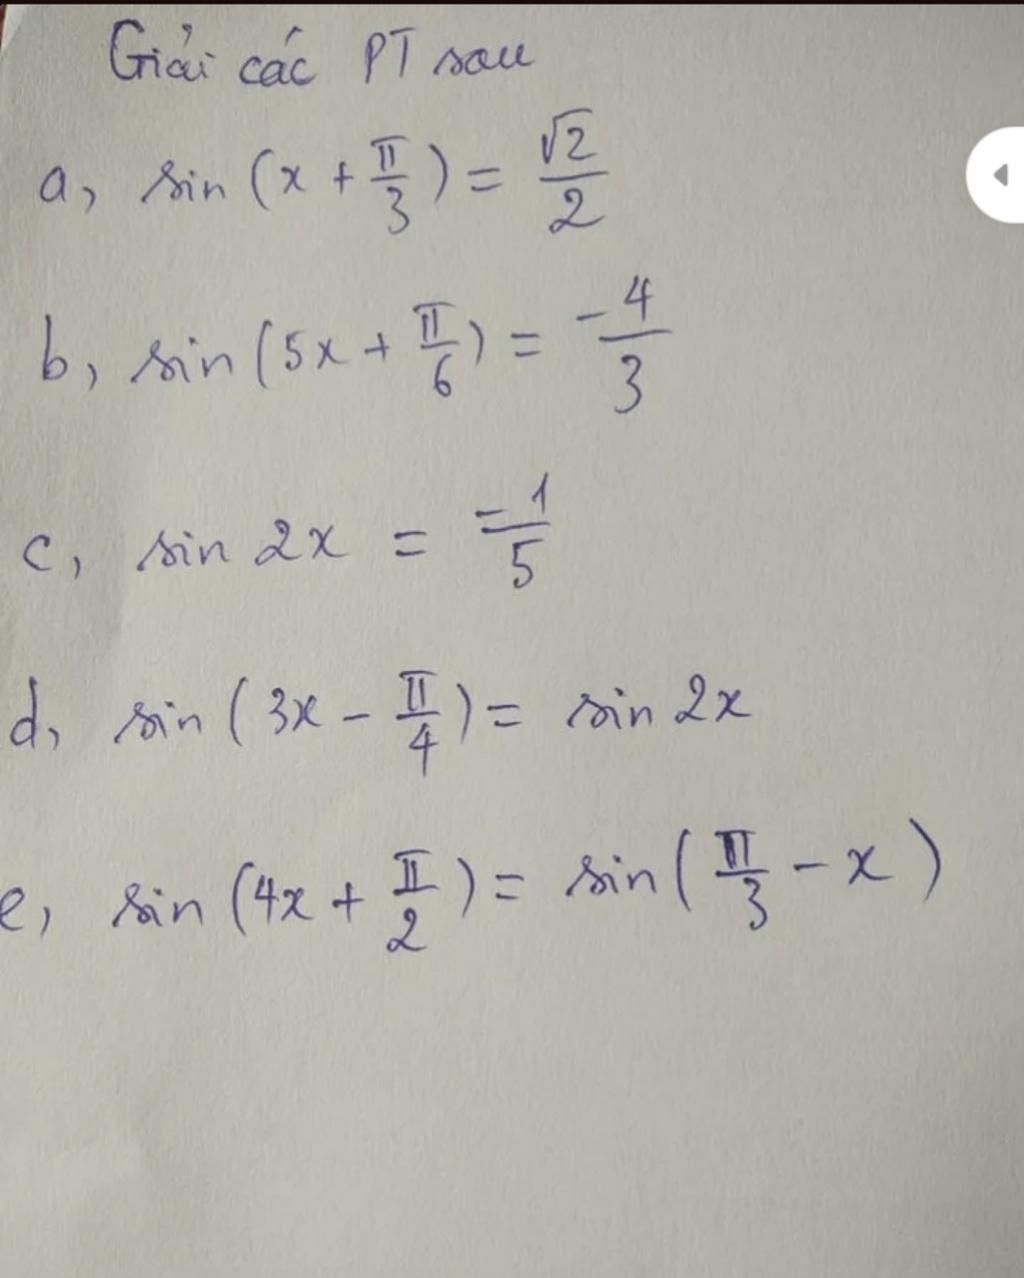 Giải các PT sau
a, sin (x + π/3) = √2/2
b, sin (5x + π/6) = -4/3
c, sin 2x = -1/5
d, sin (3x - π/4) = sin 2x
e, sin (4x + π/2) = sin (π/3 - x)